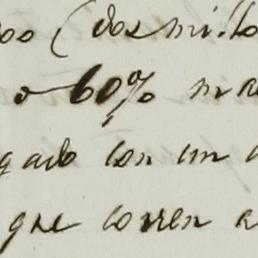 000 (dos mil
o 60%
gado con un
que corren a